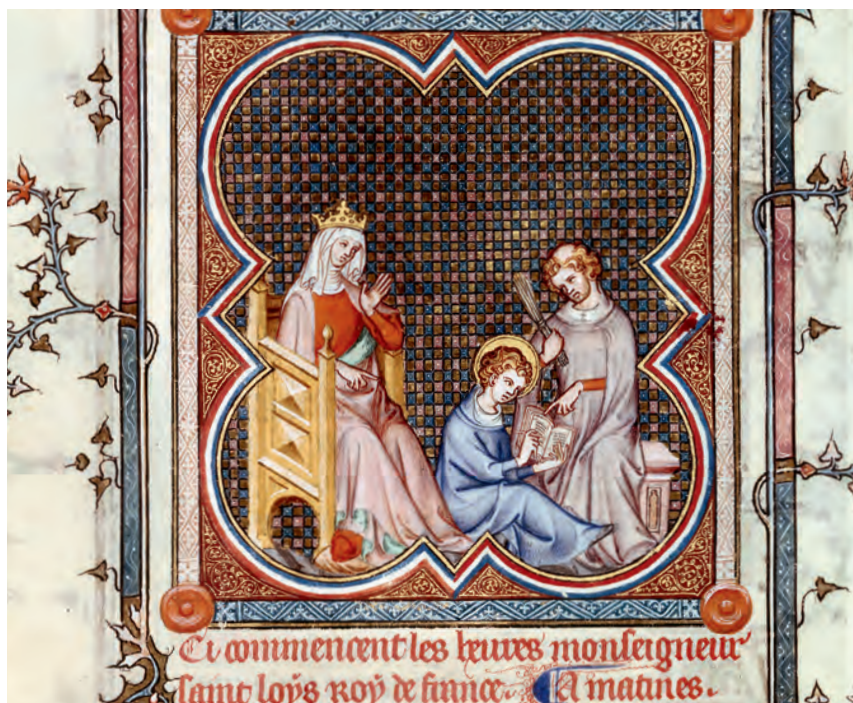 Ci commencent les heures monseigneur
saint loÿs roÿ de france. A matines.